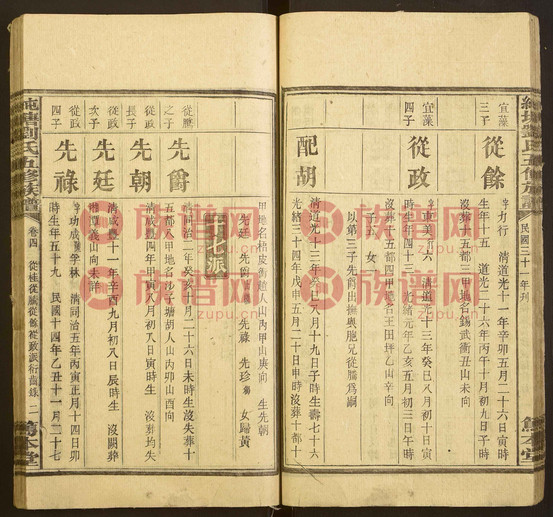 純塘劉氏五修族譜
民國三十一年列
宜藻
三子
從餘
字力行 清道光十一年辛卯五月二十六日寅時
生年十五 道光二十六年丙午十月初九日子時
沒葬十五都三甲地名錫武衝丑山未向
宜藻
四子
從政
字車美 六 清道光十三年癸巳八月初十日寅
時生年四十三 光緒元年乙亥五月初三日午時
沒葬十五都四甲地名王田坪乙山辛向
子五 女一
以第三子先爵出撫與胞兄從騰爲嗣
配胡
清道光十三年癸巳八月十九日子時生壽七十六
光緒三十四年戊申五月二十日申時沒葬十都十
甲地名梧皮衝趙人山丙甲山庚向 生先朝
先廷 先爵 先祿 先珍 女歸黃
十七派
從騰
之子
先爵
清同治二年癸亥十月二十六日未時生沒失葬十
五都八甲地名沙子塘胡人山內卯山酉向
從政
長子
先朝
清咸豐四年甲寅八月初八日寅時生 沒葬均失
從政
次子
先廷
清咸豐十一年辛酉九月初八日辰時生 沒開葬
湘潭義山向未詳
從政
四子
先祿
字功成 學林 清同治五年丙寅正月十四日卯
時生年五十九 民國十四年乙丑十一月二十七
純塘劉氏五修族譜
卷四
從桂從騰從餘從政派衍齒錄
二
篤本堂
族谱网
zupu.cn